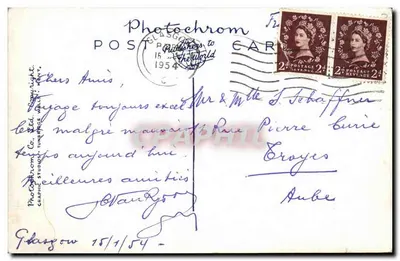 Photochrom
POST CARD
GLASGOW
1954
Publishers to the World
2d POSTAGE REVENUE 2d
2d POSTAGE REVENUE 2d
Photochrom Co. Ltd. Copyright.
Chers Amis,
Voyage toujours excel
lent malgré mauvais
temps aujourd'hui
Meilleures amitiés
Glasgow 15/1/54 -
Mr & Mlle S. Schaffner
Rue Pierre Curie
Troyes
Aube
CPAPHIL.FR